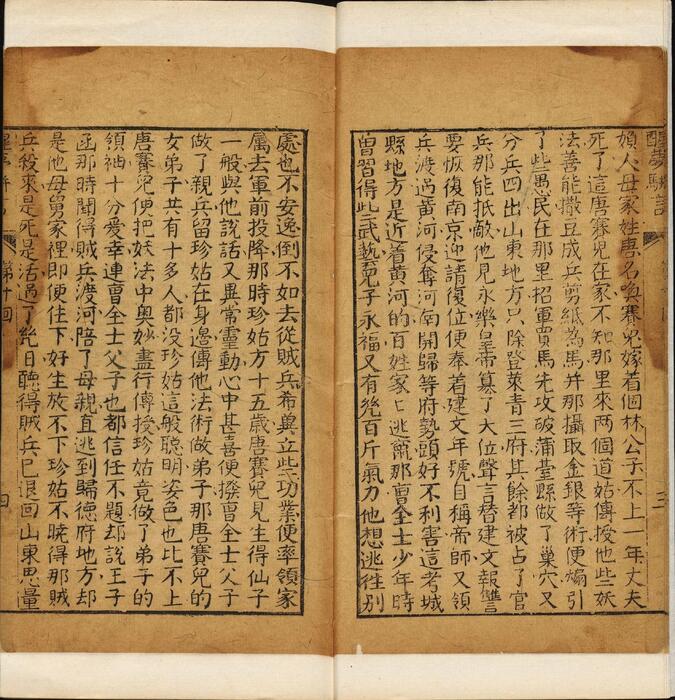 娘人母家姓唐名喚賽兒嫁着個林公子不上一年丈夫
死了這唐賽兒在家不知那里來两個道姑傳授他些妖
法善能撒豆成兵剪紙為馬并那攝取金銀等術便煽引
了些愚民在那里招軍買馬先攻破蒲䑓縣做了巢穴又
分兵四出山東地方只除登萊青三府其餘都被占了官
兵那能抵敵他見永樂皇帝篡了大位聲言替建文報讐
要恢復南京迎請復位便奉着建文年號自稱帝師又領
兵渡過黃河侵奪河南開歸等府勢頭好不利害這考城
縣地方是近着黃河的百姓家匕逃竄那曹全士少年時
曾習得些武藝兒子永福又有幾百斤氣力他想逃往別
處也不安逸倒不如去從賊兵希兾立些功業便率領家
属去軍前投降那時珍姑方十五歲唐賽兒見生得仙子
一般與他說話又異常靈動心中甚喜便撥曹全士父子
做了親兵留珍姑在身邊傳他法術做弟子那唐賽兒的
女弟子共有十多人都没珍姑這般聰明姿色也比不上
唐賽兒便把妖法中奥妙盡行傳授珍姑竟做了弟子的
領袖十分愛幸連曹全士父子也都信任不題却說王子
函那時聞得賊兵渡河陪了母親直逃到歸德府地方却
是他母舅家裡即便住下好生放不下珍姑不曉得那賊
兵殺來是死是活過了幾日聽得賊兵已退回山東思量
第十回
四